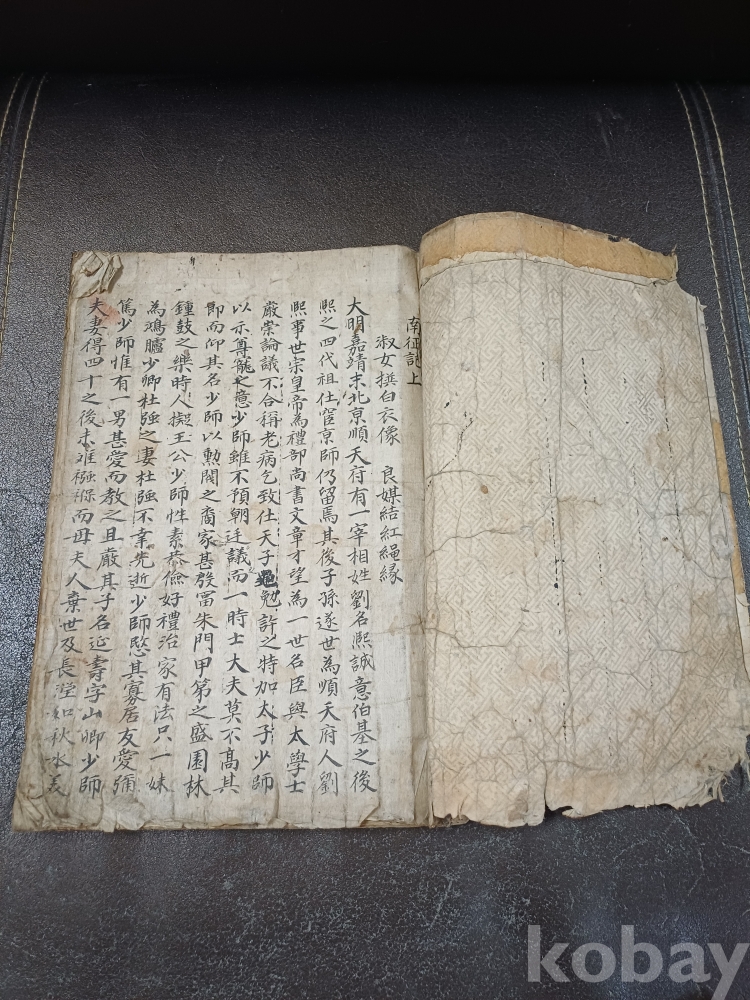 南征記上
淑女撰白衣像　良媒結紅繩緣
大明嘉靖末北京順天府有一宰相姓劉名熙誠意伯基之後
熙之四代祖仕宦京師仍留焉其後子孫遂世為順天府人劉
熙事世宗皇帝為禮部尚書文章才望為一世名臣與太學士
嚴崇論議不合稱老病乞致仕天子勉許之特加太子少師
以示尊寵之意少師雖不預朝廷議而一時士大夫莫不高其
節而仰其名少師以勳閥之裔家甚殷富朱門甲第之盛園林
鍾鼓之樂時人擬王公少師性素恭儉好禮治家有法只一妹
為鴻臚少卿杜強之妻杜強不幸先逝少師愍其寡居友愛彌
篤少師惟有一男甚愛而教之且嚴其子名延壽字山卿少師
夫妻得四十之後未離襁褓而母夫人棄世及長瀅如秋水美
kobay